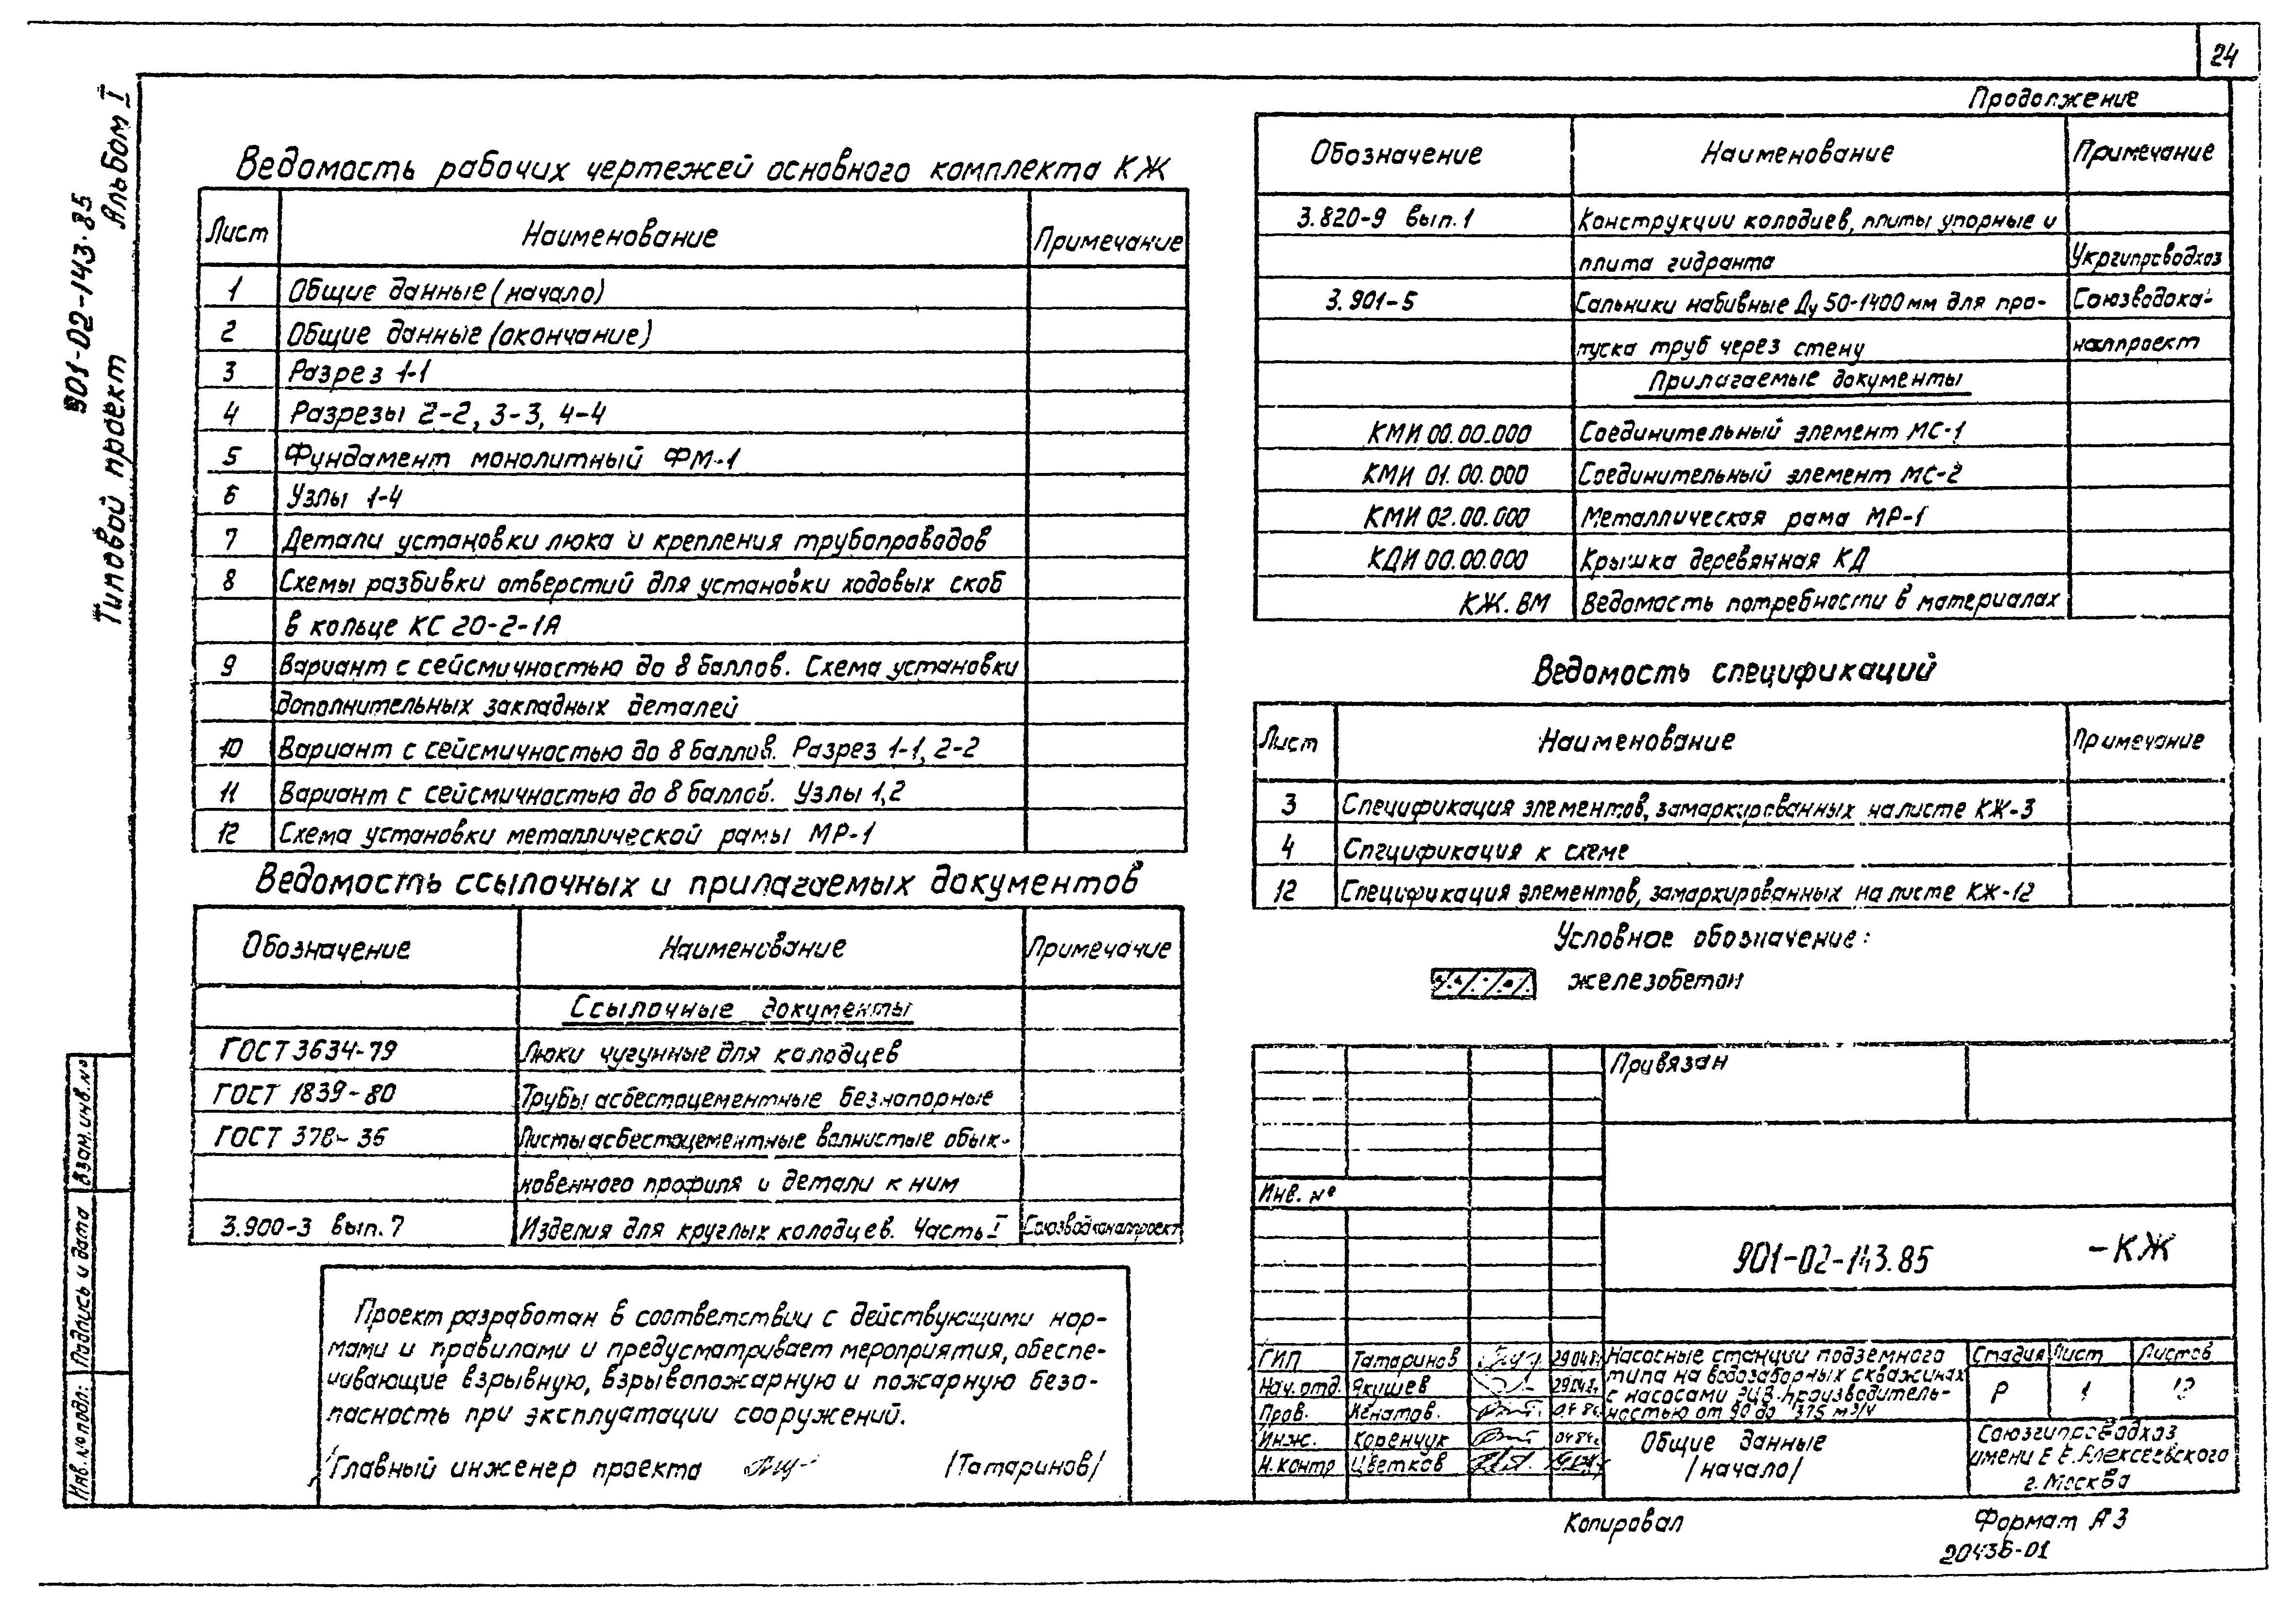 24
Типовой проект 901-02-143.85 Альбом I
Ведомость рабочих чертежей основного комплекта КЖ
Лист Наименование Примечание
1 Общие данные (начало)
2 Общие данные (окончание)
3 Разрез 1-1
4 Разрезы 2-2, 3-3, 4-4
5 Фундамент монолитный ФМ-1
6 Узлы 1-4
7 Детали установки люка и крепления трубопроводов
8 Схемы разбивки отверстий для установки ходовых скоб
в кольце КС 20-2-1А
9 Вариант с сейсмичностью до 8 баллов. Схема установки
дополнительных закладных деталей
10 Вариант с сейсмичностью до 8 баллов. Разрез 1-1, 2-2
11 Вариант с сейсмичностью до 8 баллов. Узлы 1,2
12 Схема установки металлической рамы МР-1
Ведомость ссылочных и прилагаемых документов
Обозначение Наименование Примечание
Ссылочные документы
ГОСТ 3634-79 Люки чугунные для колодцев
ГОСТ 1839-80 Трубы асбестоцементные безнапорные
ГОСТ 378- Листы асбестоцементные волнистые обык-
новенного профиля и детали к ним
3.900-3 вып. 7 Изделия для круглых колодцев. Часть I Союзводоканалпроект
Проект разработан в соответствии с действующими нор-
мами и правилами и предусматривает мероприятия, обеспе-
чивающие взрывную, взрывопожарную и пожарную безо-
пасность при эксплуатации сооружений.
Главный инженер проекта /Татаринов/
Продолжение
Обозначение Наименование Примечание
3.820-9 вып. 1 Конструкции колодцев, плиты упорные и
плита гидранта Укргипроводхоз
3.901-5 Сальники набивные Ду 50-1400 мм для про- Союзводока-
пуска труб через стену налпроект
Прилагаемые документы
КМИ 00.00.000 Соединительный элемент МС-1
КМИ 01.00.000 Соединительный элемент МС-2
КМИ 02.00.000 Металлическая рама МР-1
КДИ 00.00.000 Крышка деревянная КД
КЖ.ВМ Ведомость потребности в материалах
Ведомость спецификаций
Лист Наименование Примечание
3 Спецификация элементов, замаркированных на листе КЖ-3
4 Спецификация к схеме
12 Спецификация элементов, замаркированных на листе КЖ-12
Условное обозначение:
железобетон
Привязан
Инв. №
901-02-143.85 -КЖ
ГИП Татаринов 29.04.8
Нач. отд. Якушев 29.04.8
Пров. Кенатов.
Инж. Коренчук 04.84г.
Н. контр Цветков
Насосные станции подземного
типа на водозаборных скважинах
с насосами ЭЦВ производитель-
ностью от 90 до 375 м³/ч
Стадия Лист Листов
Р 1 12
Общие данные
/начало/
Союзгипроводхоз
имени Е.Е. Алексеевского
г. Москва
Взам. инв. №
Подпись и дата
Инв. № подл.
Копировал Формат А3
20436-01